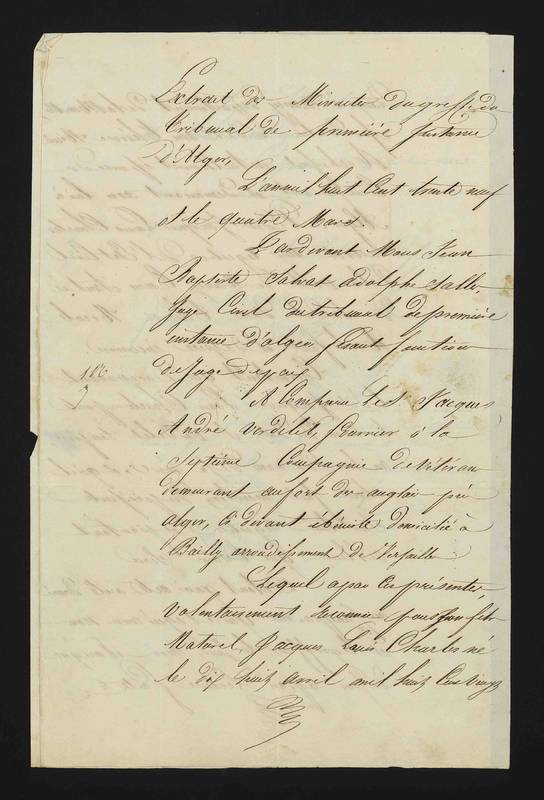 Extrait des Minutes du greffe du
Tribunal de première instance
d'Alger,
L'an mil huit Cent trente neuf
et le quatre Mars.
Pardevant Nous Jean
Baptiste Salvat adolphe Salle,
Juge Civil du tribunal de première
instance d'alger fesant fonction
de Juge de paix
A Comparu le Sr Jacques
André Verdelet, fourrier à la
Septième Compagnie de Vétéran
demeurant au fort des anglais près
alger, ci devant ébéniste domicilié à
Bailly arrondissement de Versaille
Lequel a par Ces présentes,
volontairement reconnu pour son fils
Naturel, Jacques Louis Charles né
le dix huit avril mil huit Cent vingt